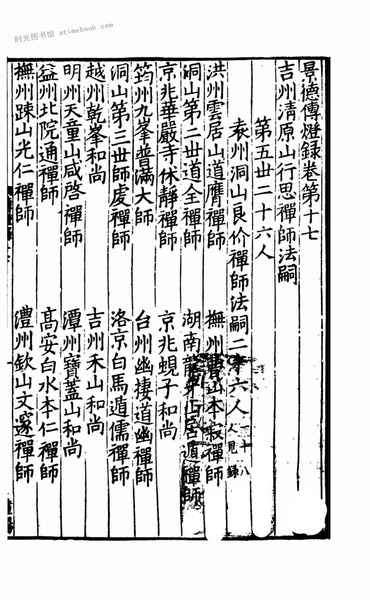 时光图书馆 atimebook.com
景德傳燈錄卷第十七
吉州清原山行思禪師法嗣
第五世二十六人
袁州洞山良价禪師法嗣二十六人
一十八人見錄
洪州雲居山道膺禪師 撫州曹山本寂禪師
洞山第二世道全禪師 湖南龍牙山居遁禪師
京兆華嚴寺休靜禪師 京兆蜆子和尚
筠州九峯普滿大師 台州幽棲道幽禪師
洞山第三世師虔禪師 洛京白馬遁儒禪師
越州乾峯和尚 吉州禾山和尚
明州天童山咸啓禪師 潭州寶蓋山和尚
益州北院通禪師 高安白水本仁禪師
撫州踈山光仁禪師 澧州欽山文邃禪師